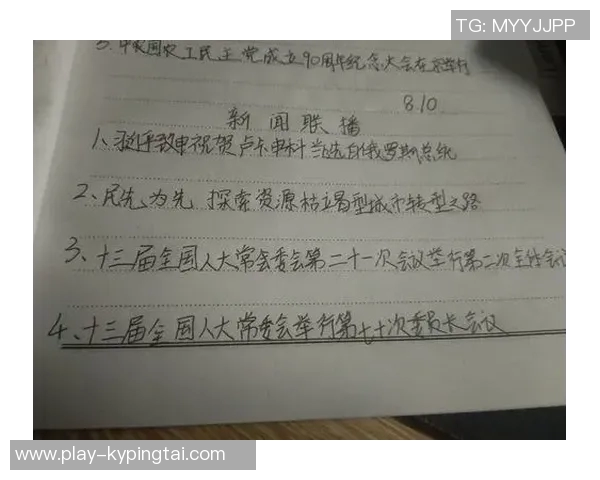 TG: MYYJJPP
5. 中国农工民主党成立90周年纪念大会在京举行
8.10
新闻联播
1、习近平致电祝贺卢卡申科当选白俄罗斯总统
2、民生为先 探索资源枯竭型城市转型之路
3、十三届全国人大常会委会第二十一次会议举行第二次全体会议
4、十三届全国人大常委会举行第七十次委员长会议
www.play-kypingtai.com